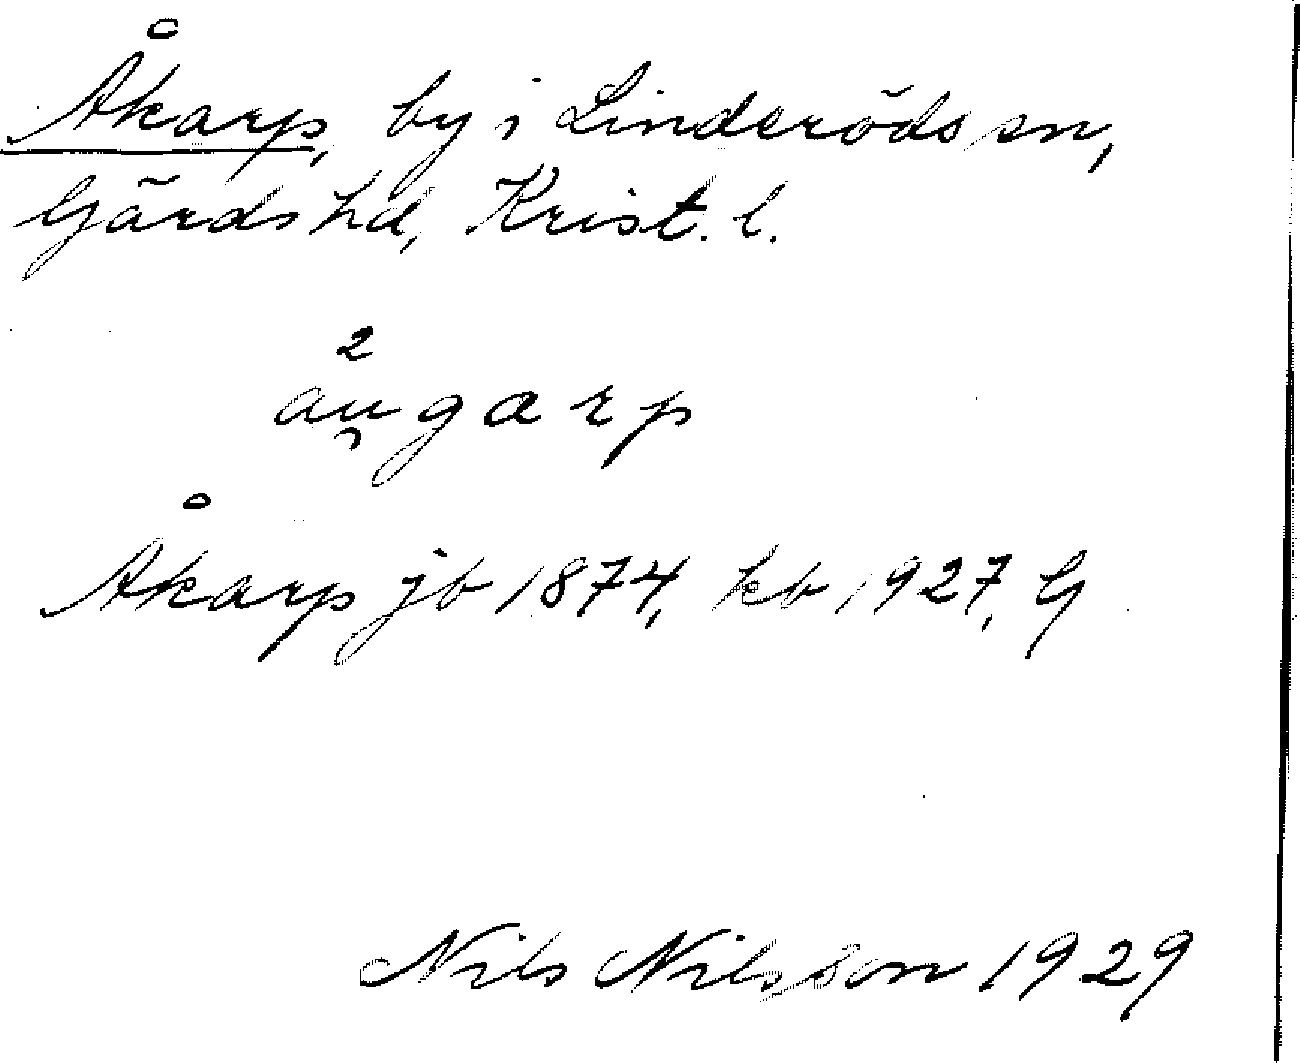 Åkarp, by i Linderöds sn,
Gärds hd, Krist. l.
2
au̯garp
Åkarp jb 1874, kb 1927, G
Nils Nilsson 1929